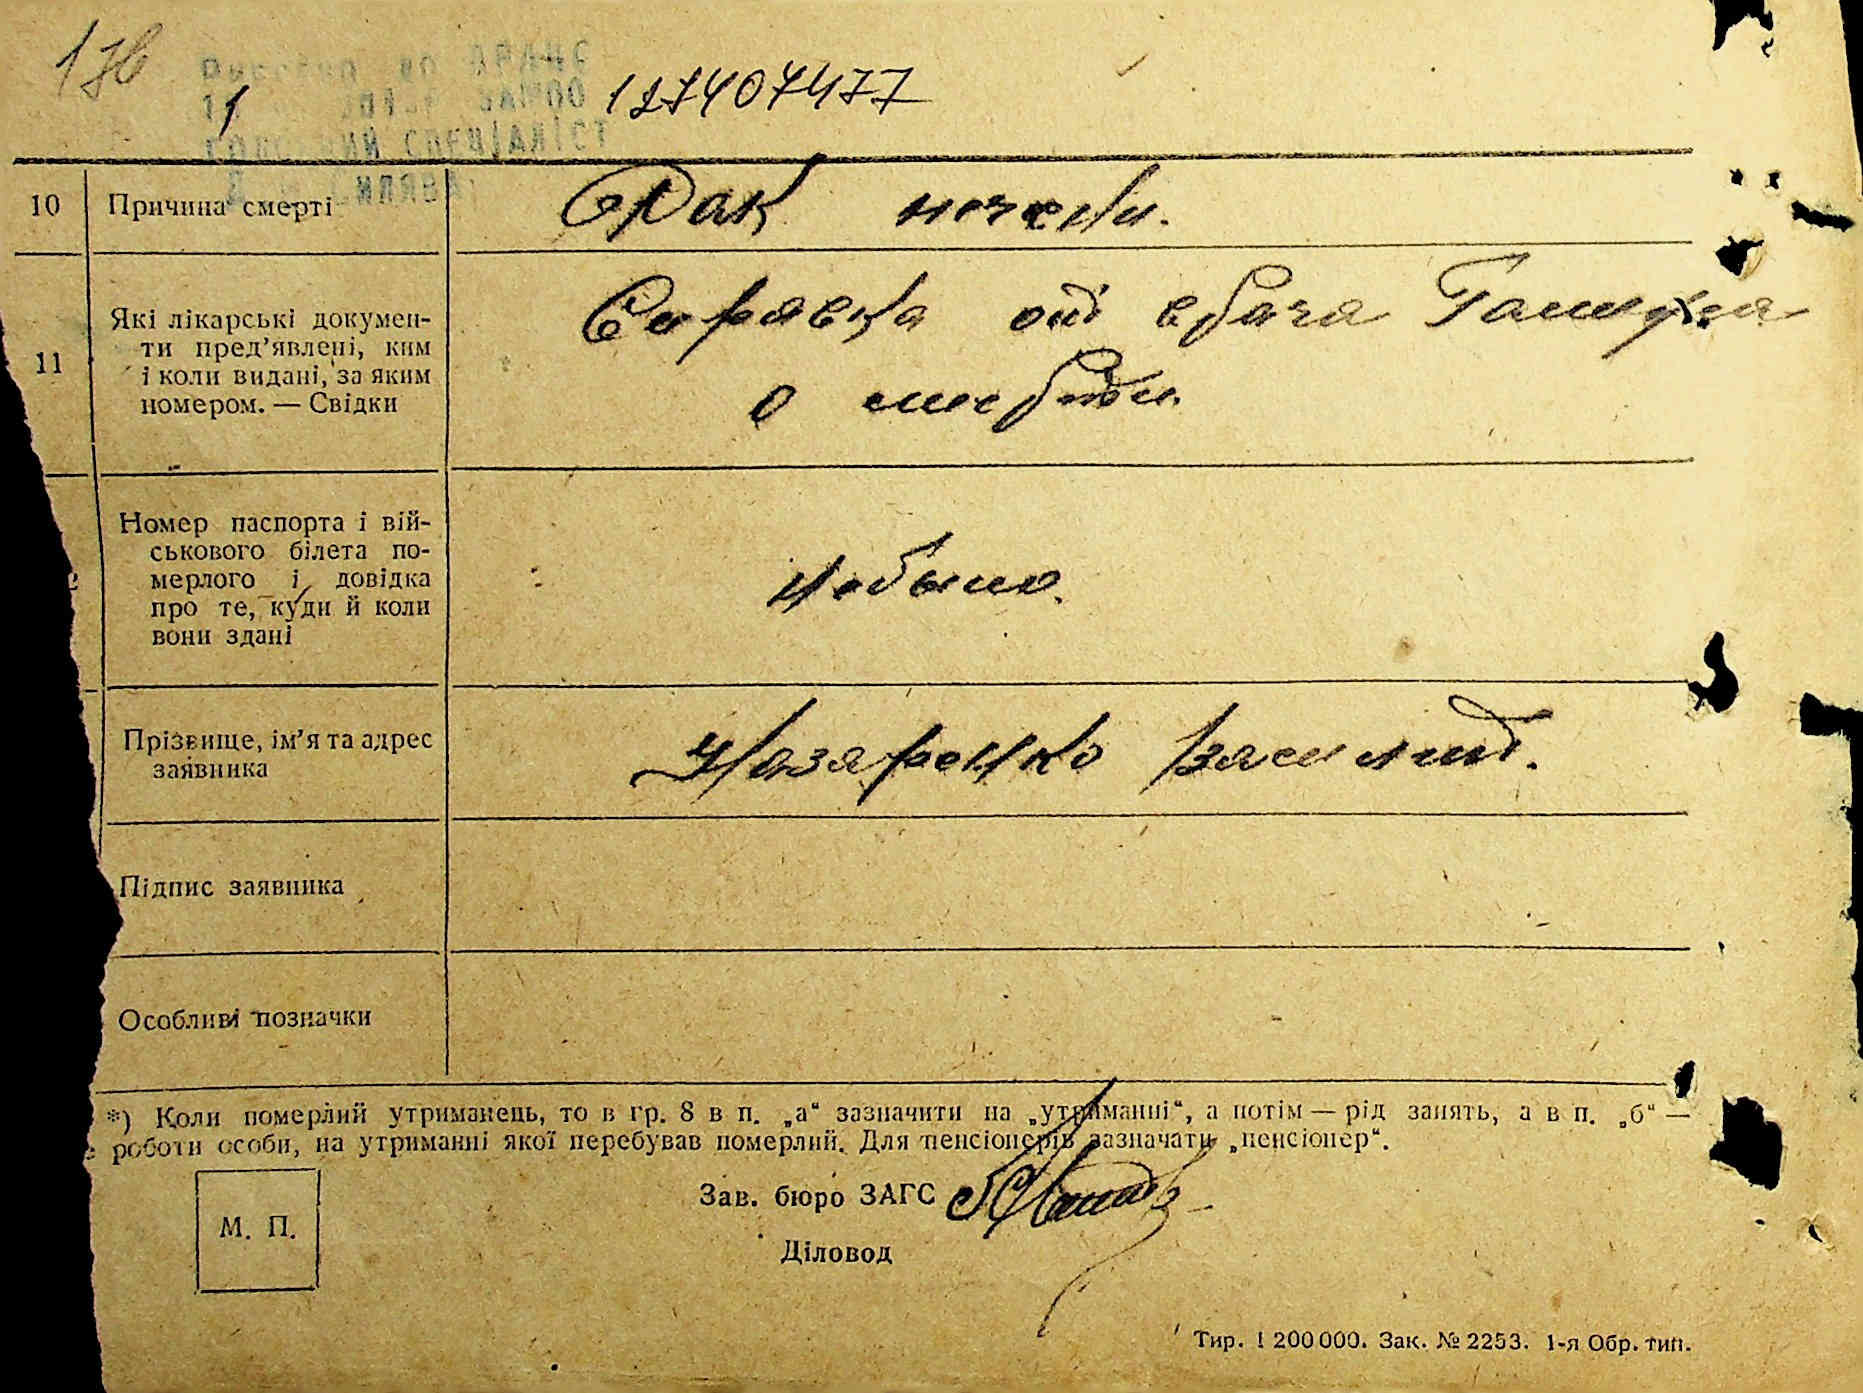 176
1
127407477
головний спеціаліст
10 Причина смерті Рак печени.
11 Які лікарські докумен-
ти пред’явлені, ким
і коли видані, за яким
номером. — Свідки
Справка от врача
о смерти.
Номер паспорта і вій-
ськового білета по-
мерлого і довідка
про те, куди й коли
вони здані
Небыло.
Прізвище, ім’я та адрес
заявника
Назаренко Василий.
Підпис заявника
Особливі позначки
*) Коли померлий утриманець, то в гр. 8 в п. „а“ зазначити на „утриманні“, а потім — рід занять, а в п. „б“ —
роботи особи, на утриманні якої перебував померлий. Для пенсіонерів зазначати „пенсіонер“.
Зав. бюро ЗАГС
М. П.
Діловод
Тир. 1 200 000. Зак. № 2253. 1-я Обр. тип.